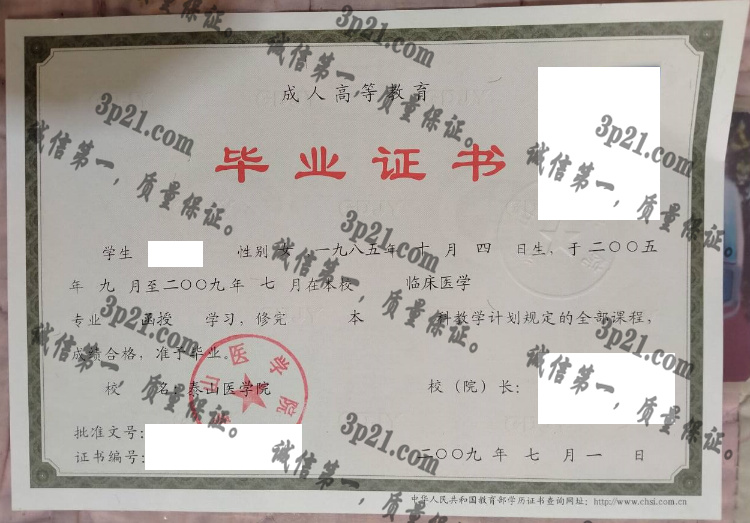 成人高等教育
毕业证书
学生 性别 女 一九八五年 十 月 四 日生，于二〇〇五
年 九 月至二〇〇九年 七 月在本校 临床医学
专业 函授 学习，修完 本 科教学计划规定的全部课程，
成绩合格，准予毕业。
校 名：泰山医学院 校（院）长：
批准文号：
证书编号： 二〇〇九 年 七 月 一 日
中华人民共和国教育部学历证书查询网址：http://www.chsi.com.cn
山医学院
3p21.com
诚信第一，质量保证。
3p21.com
诚信第一，质量保证。
3p21.com
诚信第一，质量保证。
3p21.com
诚信第一，质量保证。
3p21.com
诚信第一，质量保证。
3p21.com
诚信第一，质量保证。
3p21.com
诚信第一，质量保证。
3p21.com
诚信第一，质量保证。